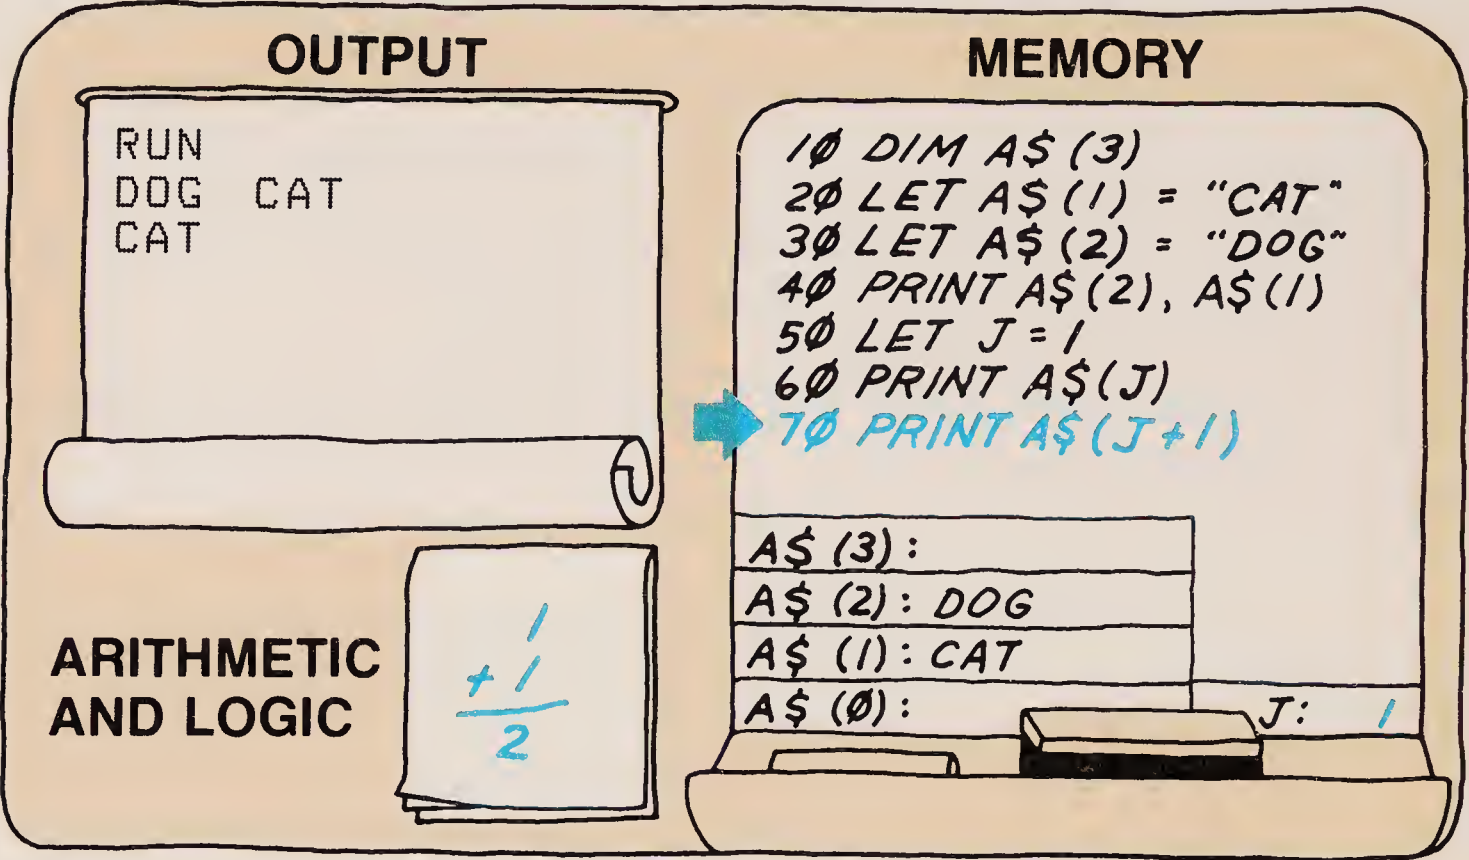 OUTPUT
RUN
DOG CAT
CAT
ARITHMETIC
AND LOGIC
1
+ 1
2
MEMORY
1Ø DIM A$ (3)
2Ø LET A$ (1) = "CAT"
3Ø LET A$ (2) = "DOG"
4Ø PRINT A$ (2), A$ (1)
5Ø LET J = 1
6Ø PRINT A$ (J)
7Ø PRINT A$ (J + 1)
A$ (3) :
A$ (2) : DOG
A$ (1) : CAT
A$ (Ø) :
J: 1